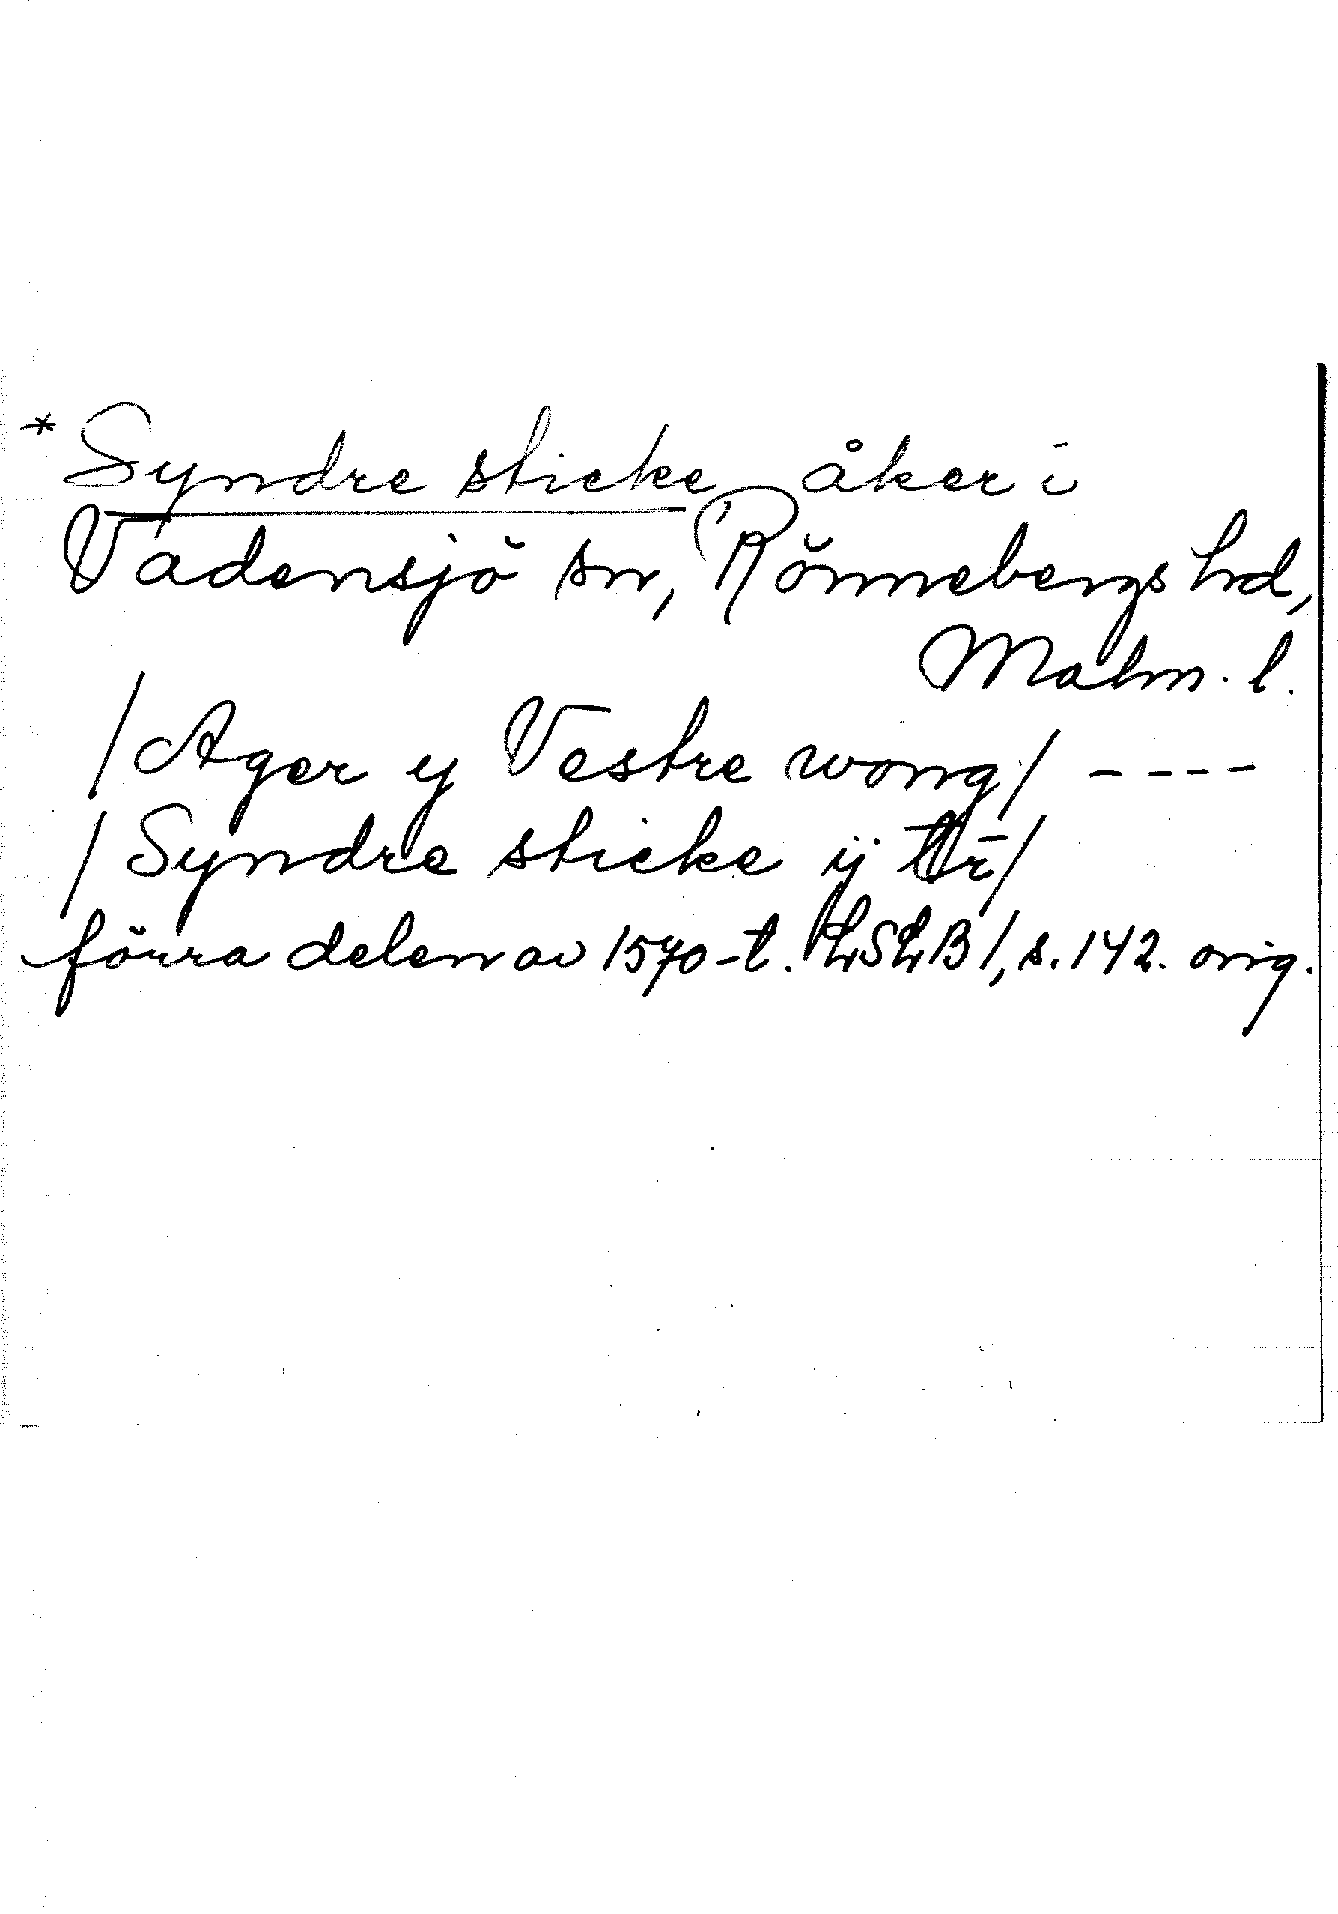 * Syndre sticke åker i
Vadensjö sn, Rönnebergs hd,
Malm. l.
/Ager y Vestre wong/ ----
/Syndre sticke ij
förra delen av 1570-t. LSLB 1, s. 142. orig.